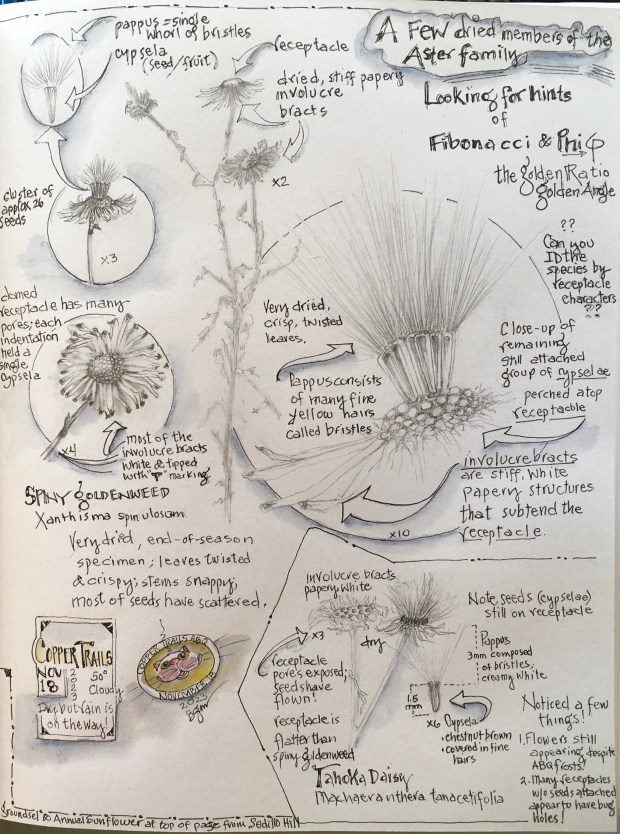 A Few dried members of the
Aster family
Looking for hints
of
Fibonacci & Phi φ
the golden Ratio
golden Angle
pappus = single
whorl of bristles
cypsela
(seed/fruit)
receptacle
dried, stiff papery
involucre
bracts
x2
cluster of
approx 26
seeds
x3
domed
receptacle has many
pores; each
indentation
held a
single
cypsela
x4
most of the
involucre bracts
white & tipped
with " " marking
SPINY goldenweed
Xanthisma spinulosum
Very dried, end-of-season
specimen; leaves twisted
& crispy; stems snappy;
most of seeds have scattered.
Very dried,
crisp, twisted
leaves.
Pappus consists
of many fine
yellow hairs
called bristles
??
Can you
ID the
species by
receptacle
characters
??
Close-up of
remaining
still attached
group of cypselae
perched atop
receptable
involucre bracts
are stiff, white
papery structures
that subtend the
receptacle.
x10
COPPER TRAILS
NOV
18
2
0
2
3
50°
Cloudy
Dry, but rain is
on the way!
COPPER TRAILS ABQ
NOVEMBER 18
2023
Involucre bracts
papery, white
x3
dry
receptacle
pores exposed;
seeds have
flown!
receptacle is
flatter than
spiny goldenweed
Note, seeds (cypselae)
still on receptacle
Pappus
3mm composed
of bristles;
creamy white
1.5
mm
x6 Cypsela
• chestnut brown
• covered in fine
hairs
Tahoka Daisy
Machaeranthera tanacetifolia
Noticed a few
things!
1. Flowers still
appearing despite
ABQ frosts!
2. Many receptacles
w/o seeds attached
appear to have bug
holes!
Groundsel & Annual Sunflower at top of page from Sedillo Hill